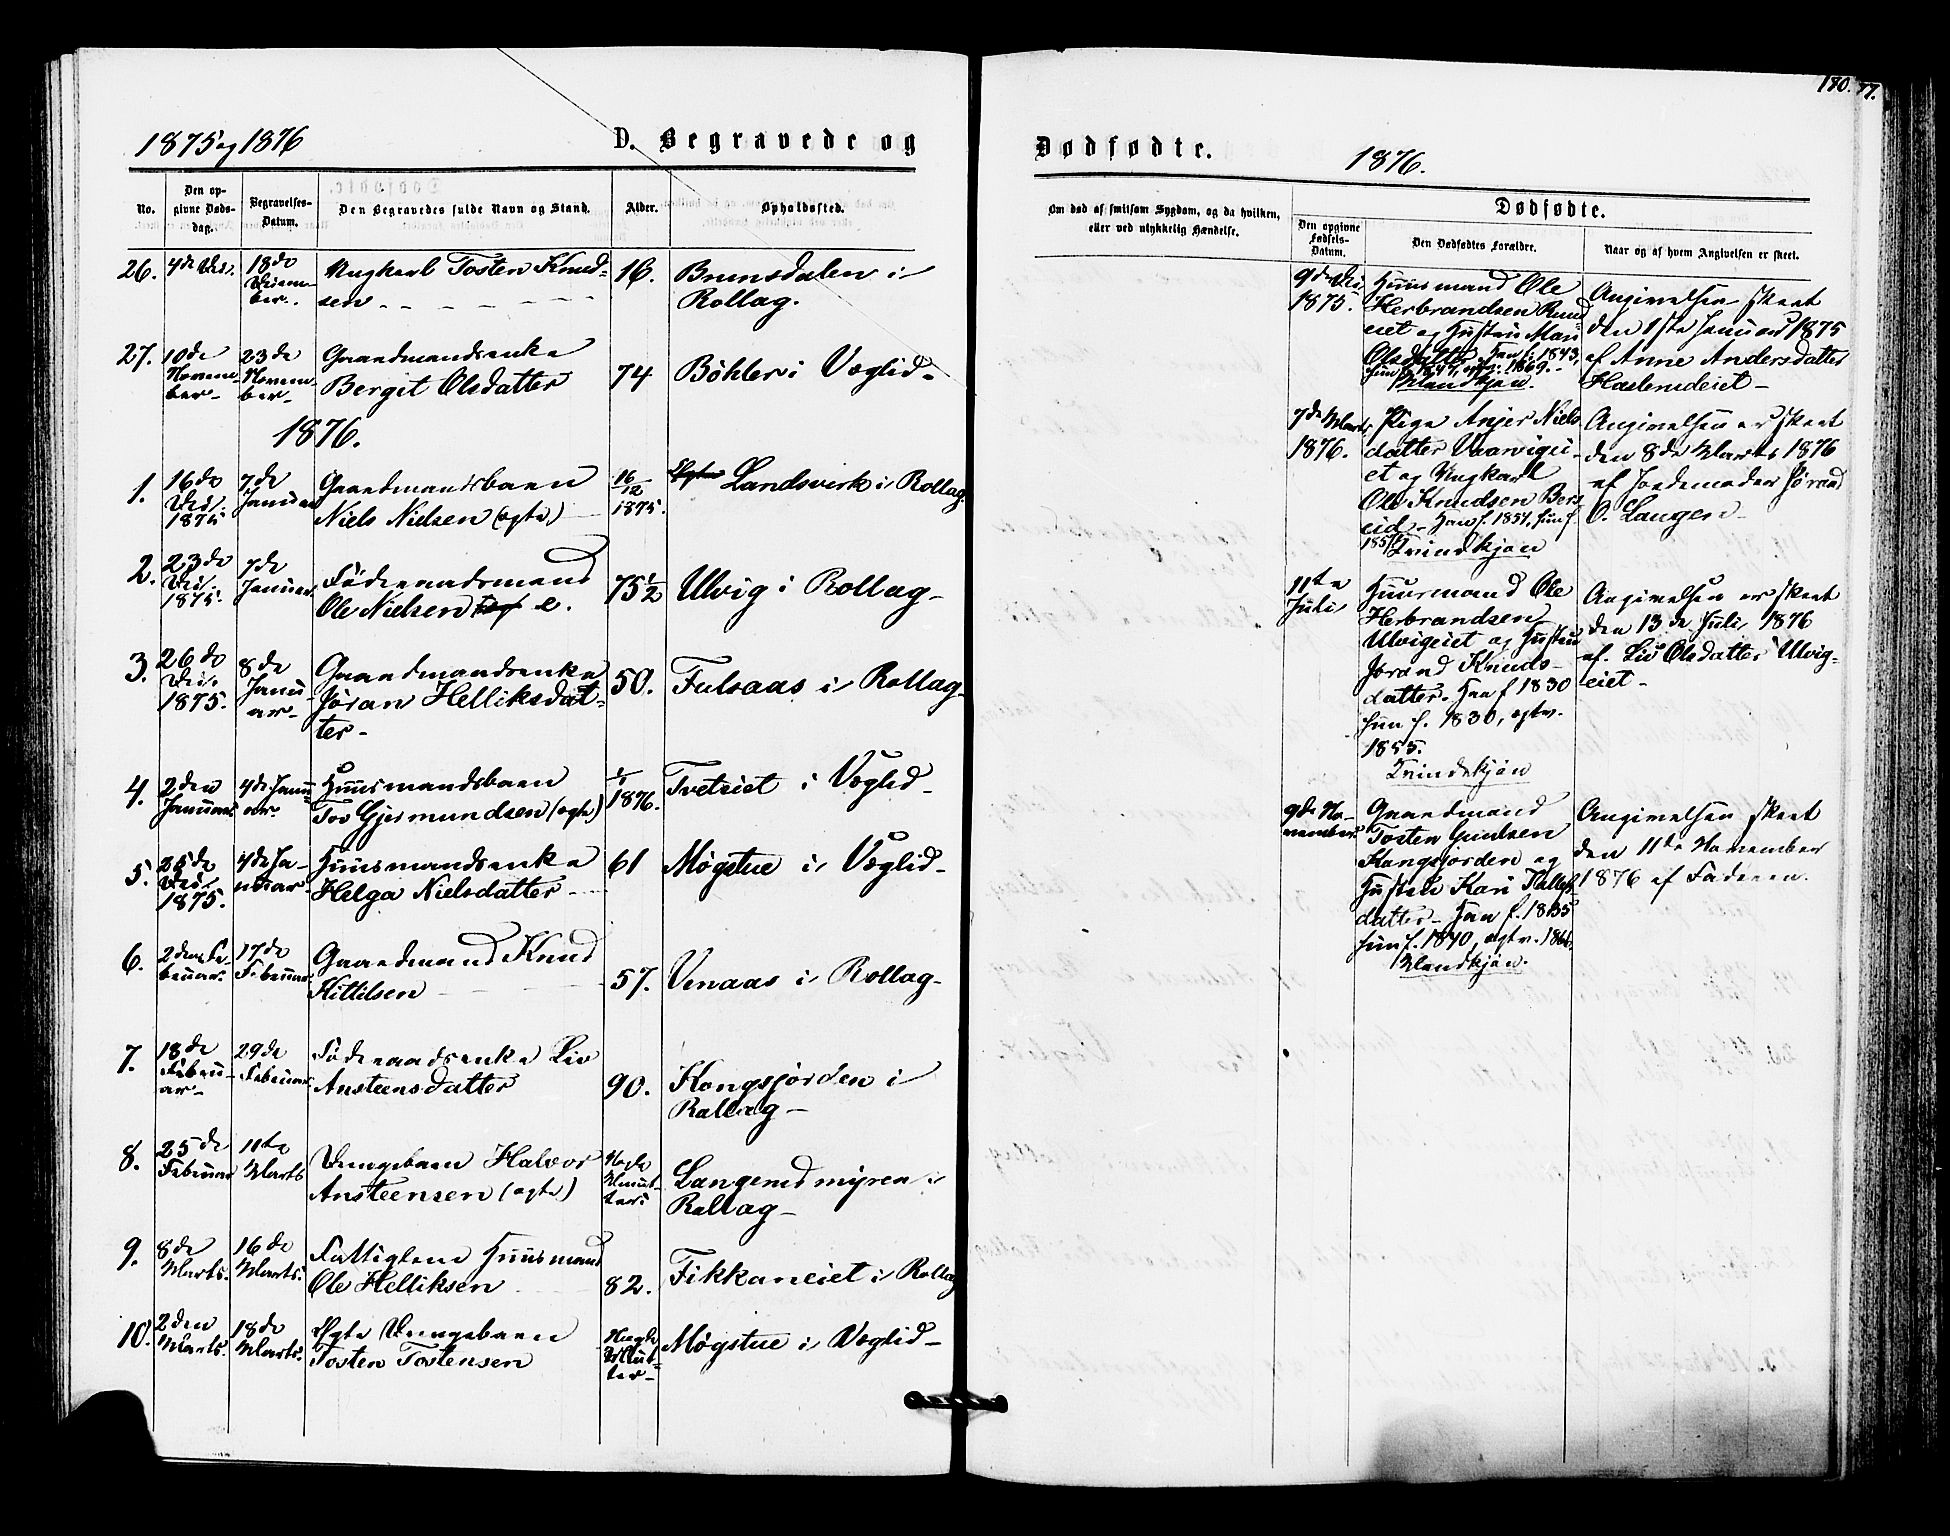 1875 og 1876
D. Begravede og
No.
Den op-
givne Døds-
dag.
Begravelses-
Datum.
Den Begravedes fulde Navn og Stand.
Alder.
Opholdssted.
26. 4de Dec. 18de Decem-
ber. Ungkarl Tosten Knud-
sen 16. Brunsdalen i
Rollag.
27. 10de
Novem-
ber 23de
Novem-
ber Gaardmandsenke
Bergit Olsdatter 74 Böhler i Væglid
1876.
1. 16de
Dec.
1875 7de
Januar Gaardmandsbarn
Niels Nielsen (ægte) 16/12
1875. Landsverk i Rollag
2. 23de
Dec.
1875. 7de
Januar Föderaadsmand
Ole Nielsen 75 1/2 Ulvig i Rollag
3. 26de
Dec.
1875. 8de
Janu-
ar Gaardmandsenke
Jøran Helliksdat-
ter 50. Fulsaas i Rollag
4. 2den
Januar 4de Janu-
ar. Huusmandsbarn
Tov Gjermundsen (ægte) 1/1
1876. Tveteiet i Væglid
5. 25de
Dec.
1875. 4de Ja-
nuar Huusmandsenke
Helga Nielsdatter 61 Møgstue i Væglid
6. 2den Fe-
bruar. 17de
Februar Gaardmand Knud
Kittilsen 57. Venaas i Rollag
7. 18de
Febru-
ar 29de
Februar Föderaadsenke Liv
Ansteensdatter 90. Kongsjorden i
Rollag
8. 25de
Februar 11te
Marts Drengebarn Halvor
Ansteensen (ægte) Nogle
Minut-
ter Langerudmyren i
Rollag
9. 8de
Marts. 16de
Marts. Fattiglem Huusmand
Ole Helliksen 82. Fikkaneiet i Rollag
10. 2den
Marts. 18de
Marts. Ægte Drengebarn
Tosten Tostensen Nogle
Minut-
ter Møgstue i Væglid
190. 77.
Dødfødte.
1876.
Om død af smitsom Sygdom, og da hvilken,
eller ved ulykkelig Hændelse.
Dødfødte.
Den opgivne
Fødsels-
Datum.
Den Dødfødtes Forældre.
Naar og af hvem Angivelsen er skeet.
9de Dec.
1875. Huusmand Ole
Herbrandsen Rud-
eiet og Hustru Mari
Olsdatter Han f. 1843,
hun f. 1847, egtv. 1869.
Mandkjøn. Angivelsen skeet
den 1ste Januar 1875
af Anne Andersdatter
Haslerudeiet
7de Marts
1876. Pige Anjer Niels
datter Vaarvigei-
et og Ungkarl
Ole Knudsen Berg
eid. Han f. 1851, hun f.
185
Kvindkjøn Angivelsen er skeet
den 8de Marts 1876
af Jordemoder Jørand
O. Langerud
11te
Juli Huusmand Ole
Herbrandsen
Ulvigeiet og Hustru
Jørand Knuds-
datter. Han f 1830
hun f. 1830, egtv.
1855.
Kvindekjøn Angivelsen er skeet
den 13de Juli 1876
af. Liv Olsdatter Ulvig-
eiet
9de No-
vember. Gaardmand
Tosten Gundsen
Kongsjorden og
Hustru Kari Tollefs-
datter. Han f. 1835
hun f. 1840, egtv.
Mandkjøn. Angivelsen skeet
den 11te November
1876 af Faderen.